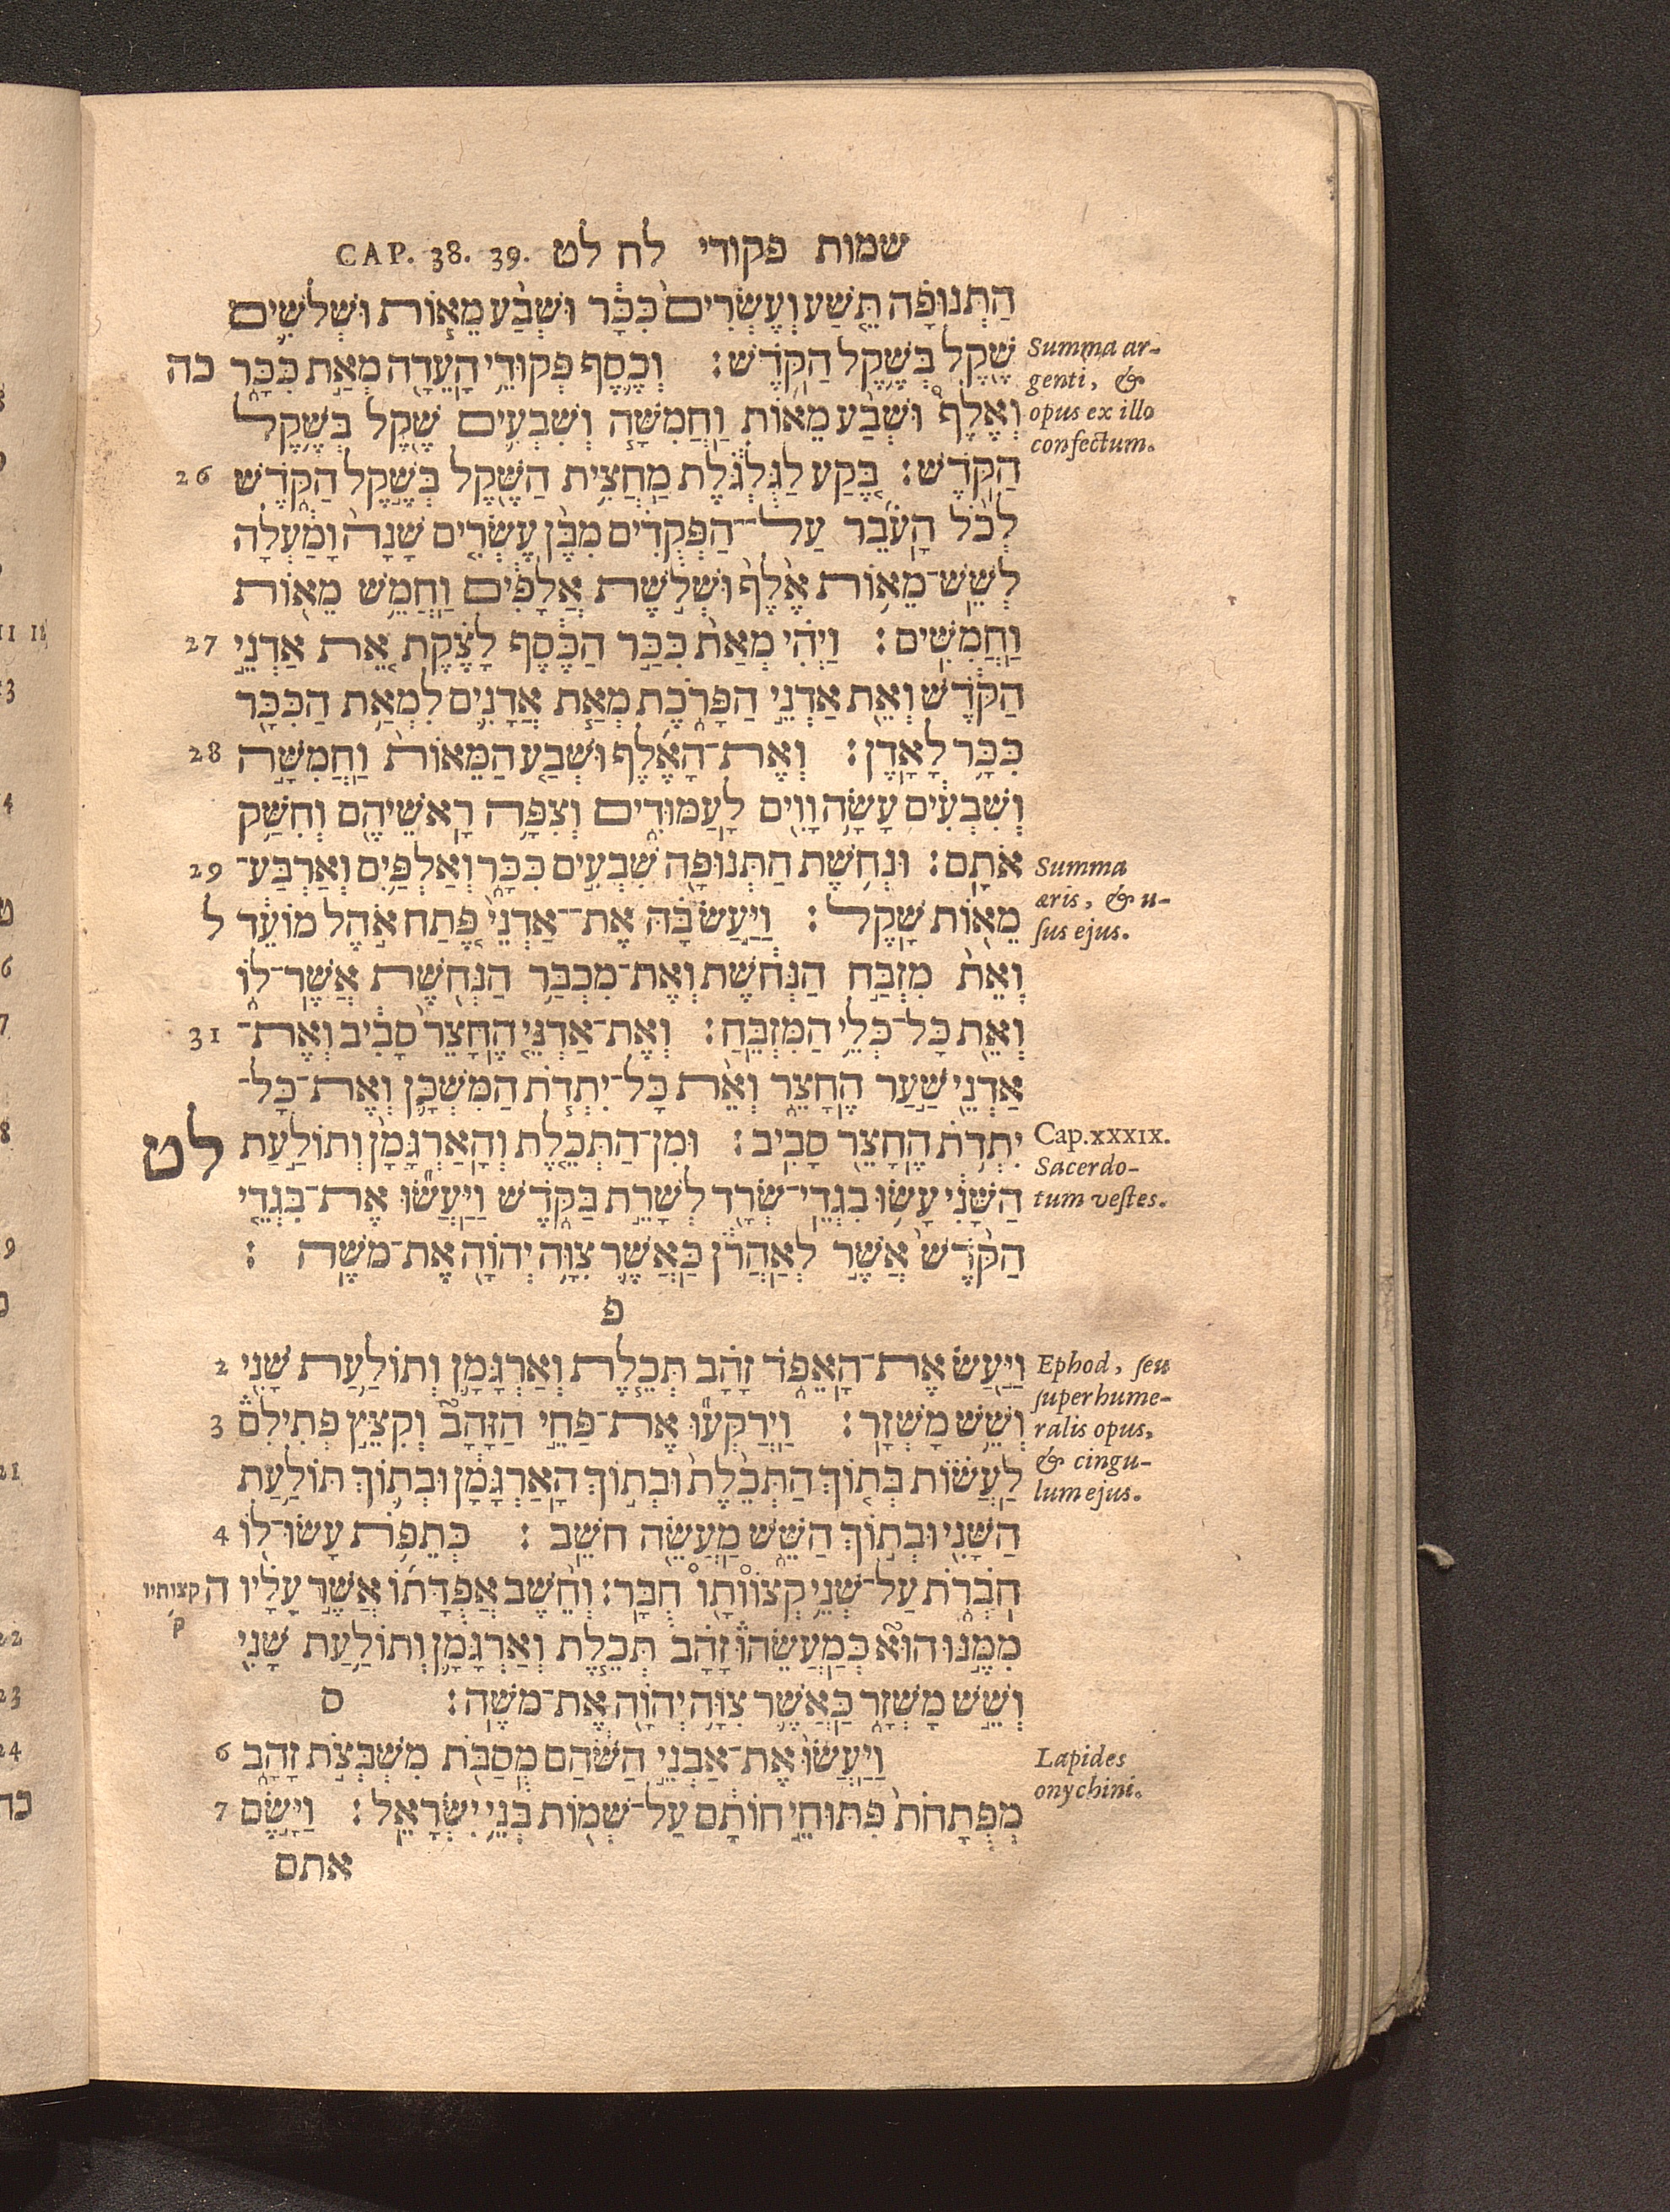 שמות פקודי לח לט CAP. 38. 39.
הַתְּנוּפָ֗ה תֵּ֤שַׁע וְעֶשְׂרִים֙ כִּכָּ֔ר וּשְׁבַ֨ע מֵא֧וֹת וּשְׁלֹשִׁ֛ים
שֶׁ֖קֶל בְּשֶׁ֥קֶל הַקֹּֽדֶשׁ׃ וְכֶ֛סֶף פְּקוּדֵ֥י הָעֵדָ֖ה מְאַ֣ת כִּכָּ֑ר כה
וְאֶלֶף֩ וּשְׁבַ֨ע מֵא֜וֹת וַחֲמִשָּׁ֧ה וְשִׁבְעִ֛ים שֶׁ֖קֶל בְּשֶׁ֥קֶל
הַקֹּֽדֶשׁ׃ בֶּ֚קַע לַגֻּלְגֹּ֔לֶת מַחֲצִ֥ית הַשֶּׁ֖קֶל בְּשֶׁ֣קֶל הַקֹּ֑דֶשׁ 26
לְכֹ֨ל הָעֹבֵ֜ר עַל־הַפְּקֻדִ֗ים מִבֶּ֨ן עֶשְׂרִ֤ים שָׁנָה֙ וָמַ֔עְלָה
לְשֵׁשׁ־מֵא֥וֹת אֶ֨לֶף֙ וּשְׁלֹ֣שֶׁת אֲלָפִ֔ים וַחֲמֵ֥שׁ מֵא֖וֹת
וַחֲמִשִּֽׁים׃ וַיְהִ֗י מְאַת֙ כִּכַּ֣ר הַכֶּ֔סֶף לָצֶ֗קֶת אֵ֚ת אַדְנֵ֣י 27
הַקֹּ֔דֶשׁ וְאֵ֖ת אַדְנֵ֣י הַפָּרֹ֑כֶת מְאַ֧ת אֲדָנִ֛ים לִמְאַ֥ת הַכִּכָּ֖ר
כִּכָּ֥ר לָאָֽדֶן׃ וְאֶת־הָאֶ֜לֶף וּשְׁבַ֤ע הַמֵּאוֹת֙ וַחֲמִשָּׁ֣ה 28
וְשִׁבְעִ֔ים עָשָׂ֥ה וָוִ֖ים לָעַמּוּדִ֑ים וְצִפָּ֥ה רָאשֵׁיהֶ֖ם וְחִשַּׁ֥ק
אֹתָֽם׃ וּנְחֹ֥שֶׁת הַתְּנוּפָ֖ה שִׁבְעִ֣ים כִּכָּ֑ר וְאַלְפַּ֥יִם וְאַרְבַּע־ 29
מֵא֖וֹת שָֽׁקֶל׃ וַיַּ֣עַשׂ בָּ֗הּ אֶת־אַדְנֵי֙ פֶּ֚תַח אֹ֣הֶל מוֹעֵ֔ד ל
וְאֵת֙ מִזְבַּ֣ח הַנְּחֹ֔שֶׁת וְאֶת־מִכְבַּ֥ר הַנְּחֹ֖שֶׁת אֲשֶׁר־ל֑וֹ
וְאֵ֖ת כָּל־כְּלֵ֥י הַמִּזְבֵּֽחַ׃ וְאֶת־אַדְנֵ֤י הֶֽחָצֵר֙ סָבִ֔יב וְאֶת־ 31
אַדְנֵ֖י שַׁ֣עַר הֶחָצֵ֑ר וְאֵ֨ת כָּל־יִתְדֹ֧ת הַמִּשְׁכָּ֛ן וְאֶת־כָּל־
יִתְדֹ֥ת הֶחָצֵ֖ר סָבִֽיב׃ וּמִן־הַתְּכֵ֤לֶת וְהָֽאַרְגָּמָן֙ וְתוֹלַ֣עַת לט
הַשָּׁנִ֔י עָשׂ֥וּ בִגְדֵי־שְׂרָ֖ד לְשָׁרֵ֣ת בַּקֹּ֑דֶשׁ וַֽיַּעֲשׂ֞וּ אֶת־בִּגְדֵ֤י
הַקֹּ֨דֶשׁ֙ אֲשֶׁ֣ר לְאַהֲרֹ֔ן כַּאֲשֶׁ֛ר צִוָּ֥ה יְהוָ֖ה אֶת־מֹשֶֽׁה׃
פ
וַיַּ֖עַשׂ אֶת־הָאֵפֹ֑ד זָהָ֗ב תְּכֵ֧לֶת וְאַרְגָּמָ֛ן וְתוֹלַ֥עַת שָׁנִ֖י 2
וְשֵׁ֥שׁ מָשְׁזָֽר׃ וַֽיְרַקְּע֞וּ אֶת־פַּחֵ֣י הַזָּהָב֮ וְקִצֵּ֣ץ פְּתִילִם֒ 3
לַעֲשׂ֗וֹת בְּת֤וֹךְ הַתְּכֵ֙לֶת֙ וּבְת֣וֹךְ הָֽאַרְגָּמָ֔ן וּבְת֛וֹךְ תּוֹלַ֥עַת
הַשָּׁנִ֖י וּבְת֣וֹךְ הַשֵּׁ֑שׁ מַעֲשֵׂ֖ה חֹשֵֽׁב׃ כְּתֵפֹ֥ת עָֽשׂוּ־ל֖וֹ 4
חֹבְרֹ֑ת עַל־שְׁנֵ֥י קְצוֹוֹתָ֖ו חֻבָּֽר׃ וְחֵ֨שֶׁב אֲפֻדָּת֜וֹ אֲשֶׁ֣ר עָלָ֗יו ה
קצותיו
ק֗
מִמֶּ֣נּוּ הוּא֮ כְּמַעֲשֵׂהוּ֒ זָהָ֗ב תְּכֵ֧לֶת וְאַרְגָּמָ֛ן וְתוֹלַ֥עַת שָׁנִ֖י
וְשֵׁ֣שׁ מָשְׁזָ֑ר כַּאֲשֶׁ֛ר צִוָּ֥ה יְהוָ֖ה אֶת־מֹשֶֽׁה׃ ס
וַֽיַּעֲשׂוּ֙ אֶת־אַבְנֵ֣י הַשֹּׁ֔הַם מֻֽסַבֹּ֖ת מִשְׁבְּצֹ֣ת זָהָ֑ב 6
מְפֻתָּחֹת֙ פִּתּוּחֵ֣י חוֹתָ֔ם עַל־שְׁמ֖וֹת בְּנֵ֥י יִשְׂרָאֵֽל׃ וַיָּ֣שֶׂם 7
אתם
Summa ar-
genti, &
opus ex illo
confectum.
Summa
æris, & u-
ſus ejus.
Cap. XXXIX.
Sacerdo-
tum veſtes.
Ephod, ſeu
ſuperhume-
ralis opus,
& cingu-
lum ejus.
Lapides
onychini.